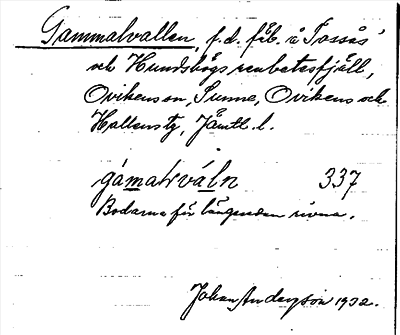 Gammalvallen, f.d. fäb. å Tossås
och Hundshögs renbetesfjäll,
Ovikens sn, Sunne, Ovikens och
Hallens tg, Jämtl. l.
gámatváln 337
Bodarna för längesedan rivna.
Johan Anderson 1932.